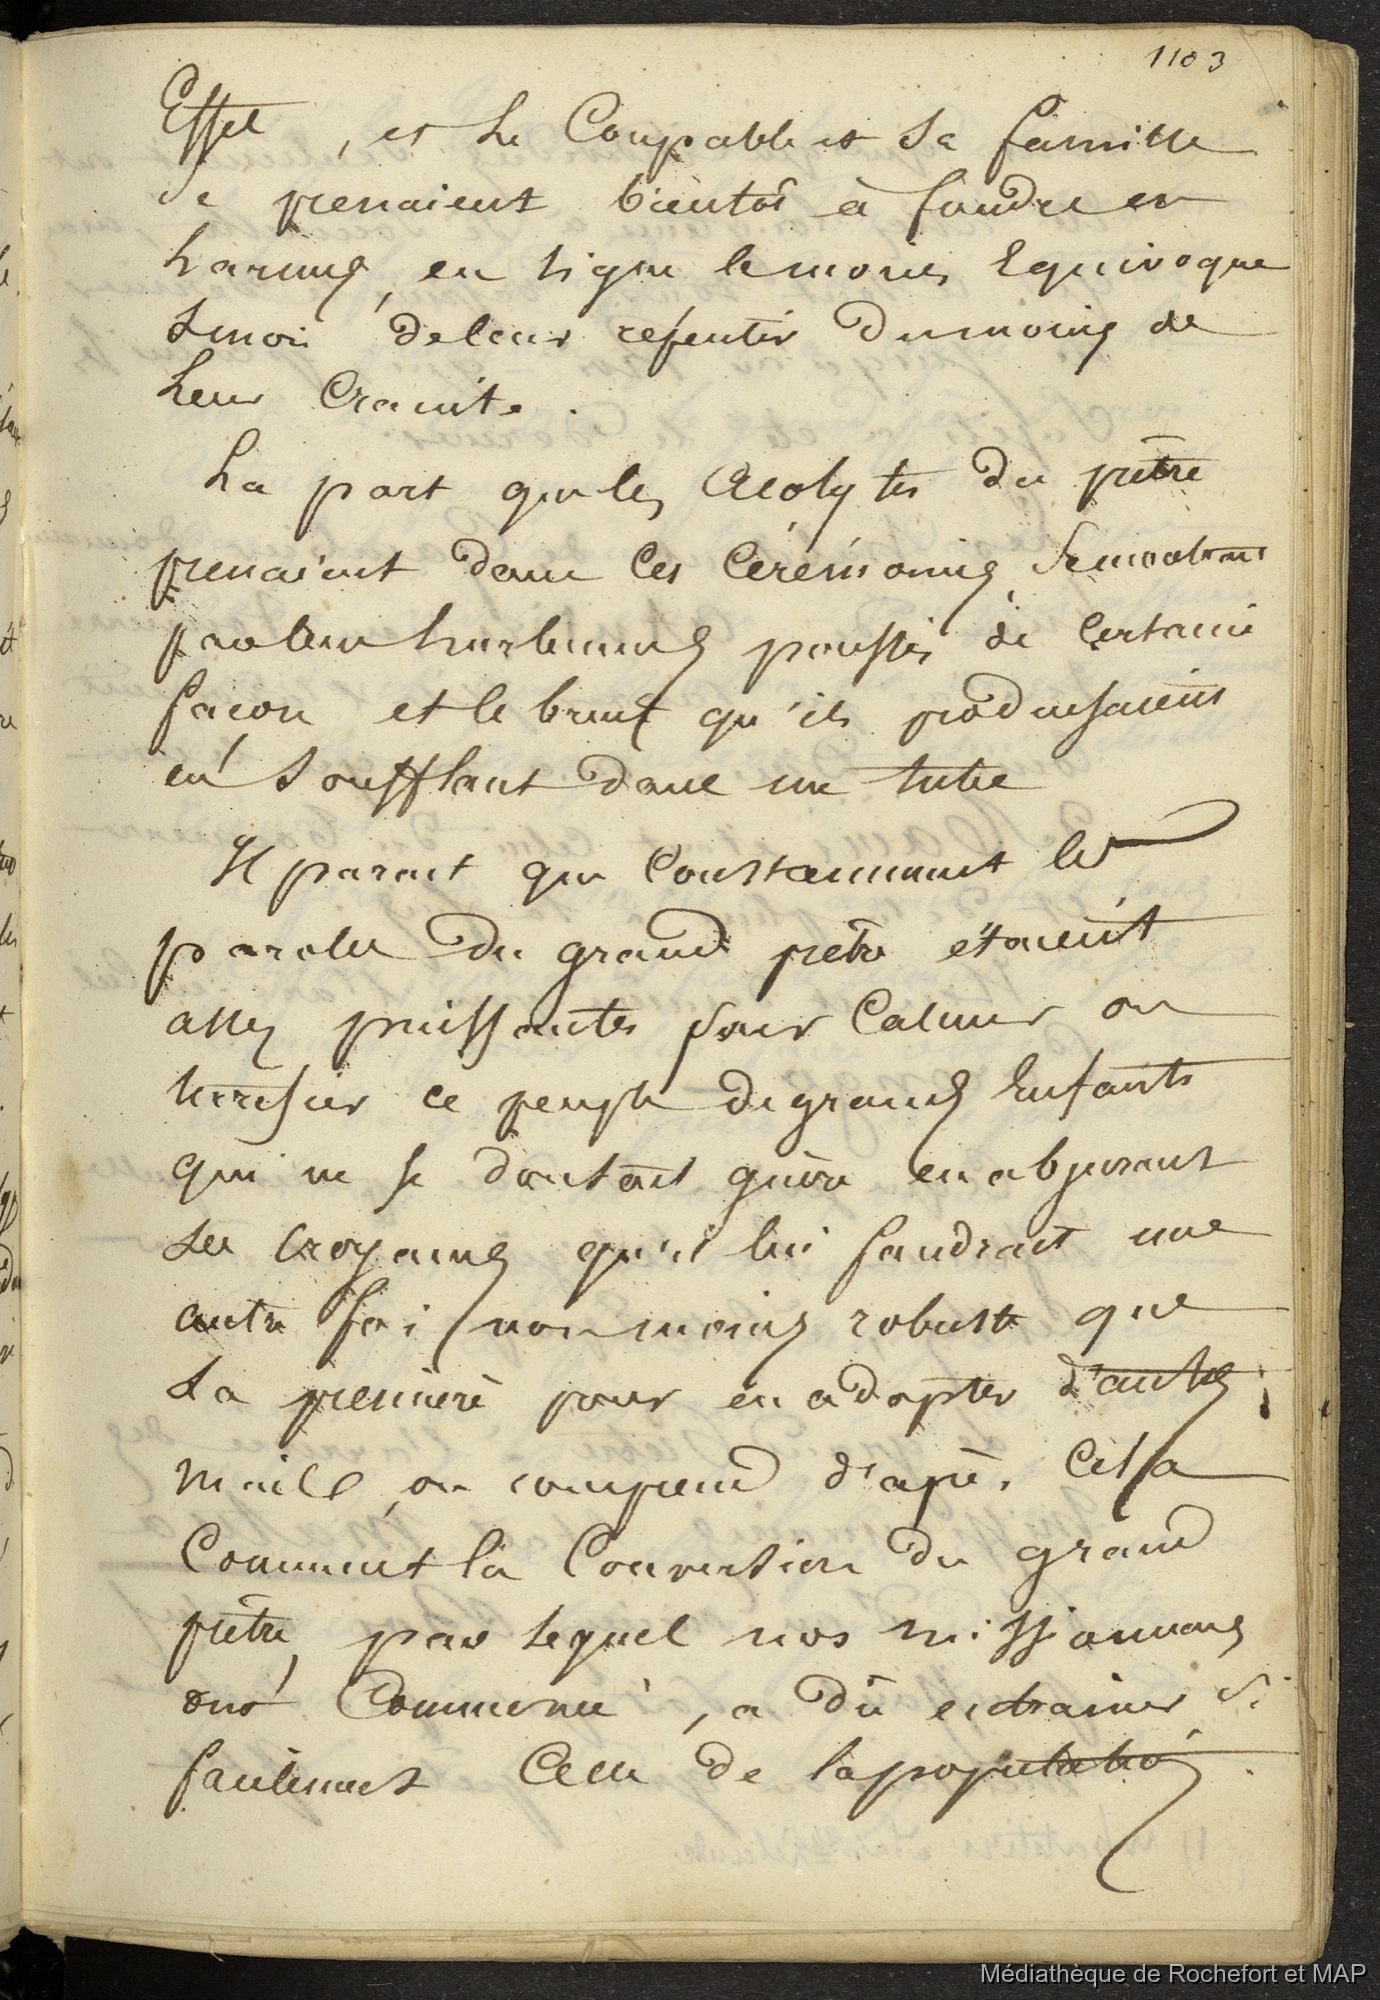 1103
Effet, et le Coupable et sa famille
se prenaient bientôt à fondre en
larmes, en signe le moins Equivoque
sinon de leur repentir du moins de
leur Crainte.
La part que les Acolytes du prêtre
prenaient dans ces Cérémonies,
par leur hurlements poussés de Certaine
façon et le bruit qu'ils produisaient
en soufflant dans un tube
Il parait que Constamment les
paroles du grand prêtre étaient
assez puissantes pour Calmer ou
terrifier ce peuple de grands Enfants
qui ne se doutait guère en abjurant
ses Croyances qu'il lui faudrait une
autre foi non moins robuste que
la première pour en adopter d'autres;
Mais on comprend d'après Cela
Comment la Conversion du grand
prêtre, par lequel nos missionnaires
ont Commencé, a dû entrainer si
facilement Celle de la population.
Médiathèque de Rochefort et MAP